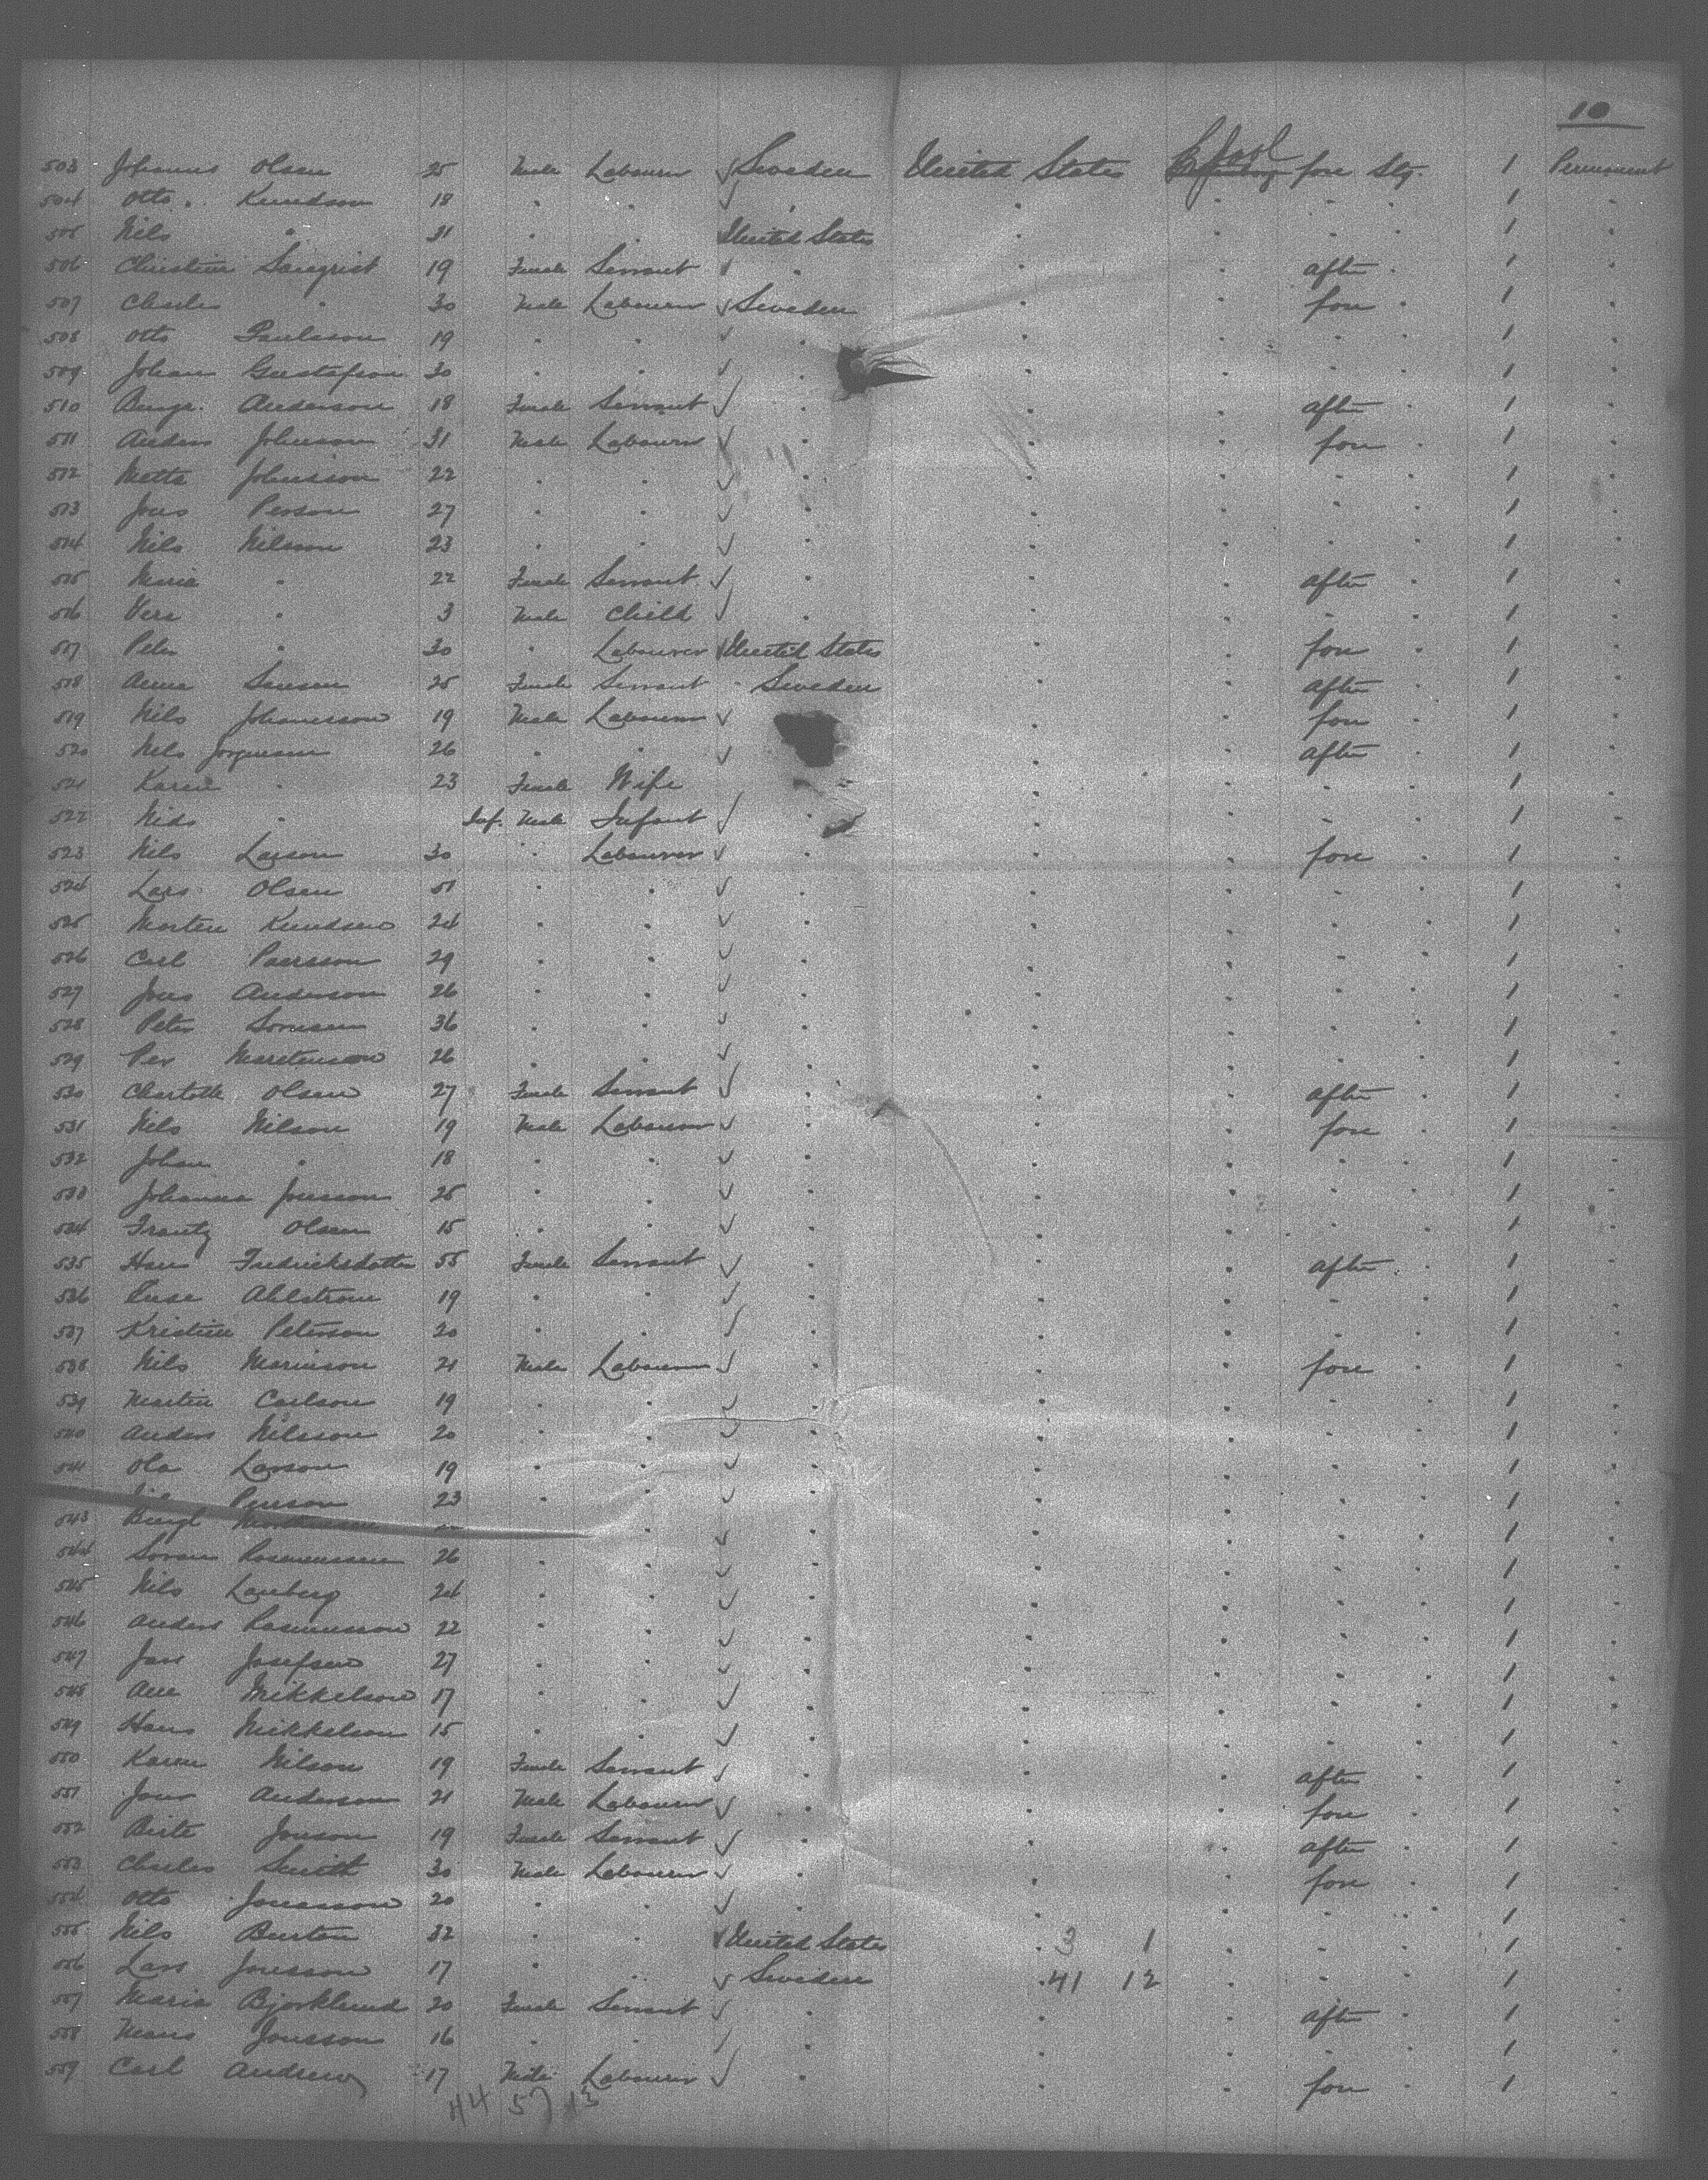 10
503 Johannes Olsen 25 Male Labourer ✓ Sweden United States fore Stg. 1 Permanent
504 Otto Knudson 18 " " ✓ " " " " " 1 "
505 Nils " 31 " " United States " " " " 1 "
506 Christine 19 Female Servant ✓ " " " after " 1 "
507 Charles " 30 Male Labourer ✓ Sweden " " fore " 1 "
508 Otto Paulsson 19 " " ✓ " " " " " 1 "
509 Johan Gustafson 30 " " ✓ " " " " " 1 "
510 Anderson 18 Female Servant ✓ " " " after " 1 "
511 Anders Johnson 31 Male Labourer ✓ " " " fore " 1 "
512 Johnsson 22 " " ✓ " " " " " 1 "
513 Jons Person 27 " " ✓ " " " " " 1 "
514 Nils Nilsson 23 " " ✓ " " " " " 1 "
515 Maria " 22 Female Servant ✓ " " " after " 1 "
516 " 3 Male Child ✓ " " " " " 1 "
517 Peter " 30 " Labourer ✓ United States " " fore " 1 "
518 Anna 25 Female Servant Sweden " " after " 1 "
519 Nils Johannsson 19 Male Labourer ✓ " " fore " 1 "
520 Nils Jorgensen 26 " " ✓ " " after " 1 "
521 Karen " 23 Female Wife " " " " " 1 "
522 " Inf. Male Infant ✓ " " " " " 1 "
523 Nils Larson 30 " Labourer ✓ " " " fore " 1 "
524 Lars Olsen 51 " " ✓ " " " " " 1 "
525 Morten Knudsen 24 " " ✓ " " " " " 1 "
526 Carl Paersson 29 " " ✓ " " " " " 1 "
527 Jons Anderson 26 " " ✓ " " " " " 1 "
528 Peter Sorensen 36 " " ✓ " " " " " 1 "
529 Per Martenson 26 " " ✓ " " " " " 1 "
530 Charlotte Olsen 27 Female Servant ✓ " " " after " 1 "
531 Nils Nilson 19 Male Labourer ✓ " " " fore " 1 "
532 Johan " 18 " " ✓ " " " " " 1 "
533 Johanna Jonsson 25 " " ✓ " " " " " 1 "
534 Frantz Olsen 15 " " ✓ " " " " " 1 "
535 Fredricksdatter 55 Female Servant ✓ " " " after " 1 "
536 Ahlstrom 19 " " ✓ " " " " " 1 "
537 Kristine Peterson 20 " " ✓ " " " " " 1 "
538 Nils 21 Male Labourer ✓ " " " fore " 1 "
539 Martin Carlson 19 " " ✓ " " " " " 1 "
540 Anders Nilsson 20 " " ✓ " " " " " 1 "
541 Ola Larson 19 " " ✓ " " " " " 1 "
23 " " ✓ " " " " " 1 "
543 Bengt " " ✓ " " " " " 1 "
544 Soren Rasmussen 26 " " ✓ " " " " " 1 "
545 Nils 24 " " ✓ " " " " " 1 "
546 Anders Rasmusson 22 " " ✓ " " " " " 1 "
547 Josefsen 27 " " ✓ " " " " " 1 "
548 Mikkelson 17 " " ✓ " " " " " 1 "
549 Hans Mikkelson 15 " " ✓ " " " " " 1 "
550 Karen Nilson 19 Female Servant ✓ " " " after " 1 "
551 Jons Anderson 21 Male Labourer ✓ " " " fore " 1 "
552 Birte Jonson 19 Female Servant ✓ " " " after " 1 "
553 Charles Smith 30 Male Labourer ✓ " " " fore " 1 "
554 Otto Jonasson 20 " " ✓ " " " " " 1 "
555 Nils Burton 32 " " ✓ United States " 3 1 " " " 1 "
556 Lars Jonsson 17 " " ✓ Sweden " 41 12 " " " 1 "
557 Maria Bjorklund 20 Female Servant ✓ " " " after " 1 "
558 Mans Jonsson 16 " " ✓ " " " " " 1 "
559 Carl Andrew 17 Male Labourer ✓ " " " fore " 1 "
44 57 13